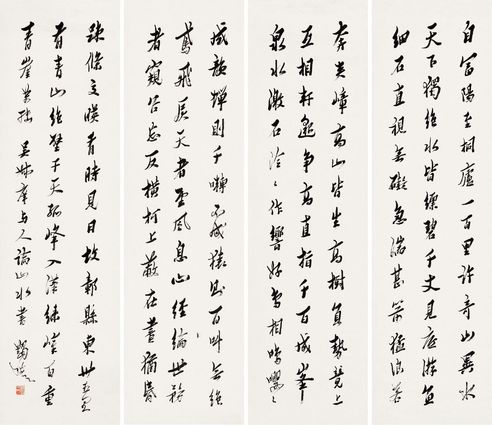 自富陽至桐廬一百里許奇山異水
天下獨絕水皆縹碧千丈見底游魚
細石直視無礙急湍甚箭猛浪若
奔夾嶂高山皆生高樹負勢競上
互相軒邈争高直指千百成峯
泉水激石泠々作響好鳥相鳴嚶々
成韻蟬則千囀不成猿則百叫無絕
鳶飛戾天者望風息心經綸世務
者窺谷忘反橫柯上蔽在晝猶昏
踈條交暎有時見日故鄣縣東卅五里
有青山絕壁干天孤峰入漢綠嶂百重
青崖萬轉 吴叔庠与人論山水書